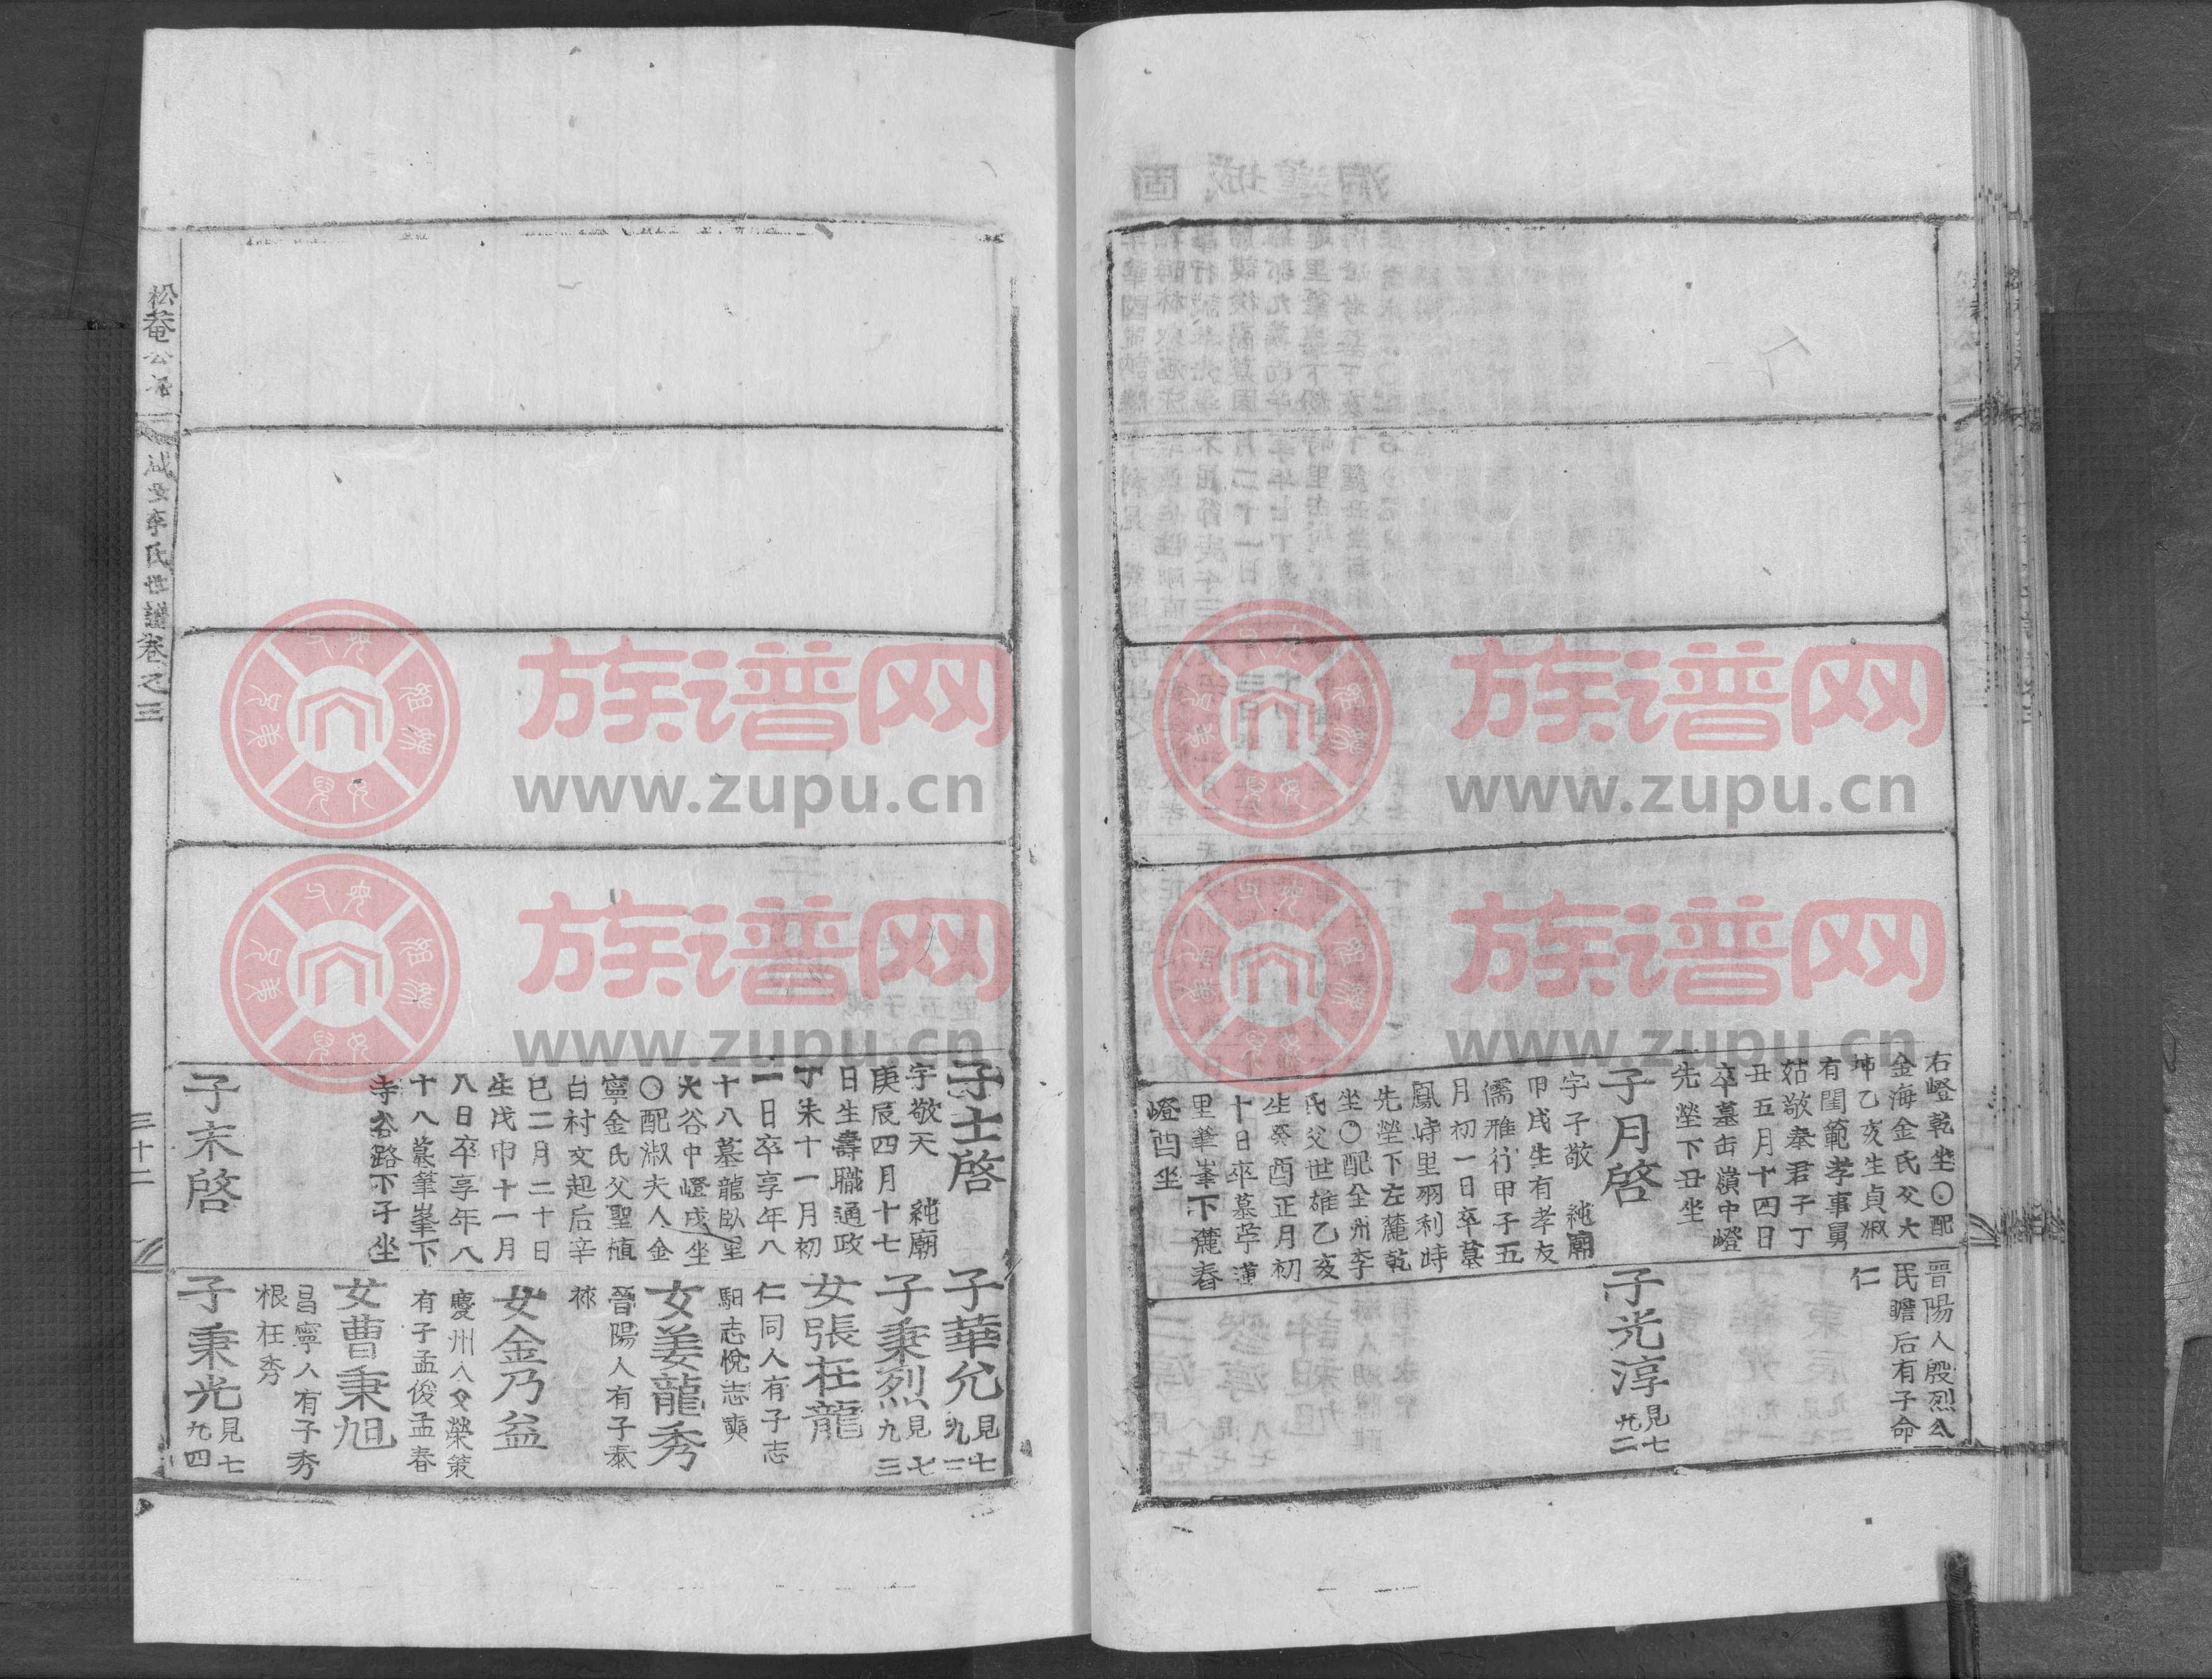 右嶝乾坐〇配
金海金氏父大
坤乙亥生貞淑
有閨範孝事舅
姑敬奉君子丁
丑五月十四日
卒墓缶嶺中嶝
先塋下丑坐
子月啓
字子敬 純廟
甲戌生有孝友
儒雅行甲子五
月初一日卒墓
鳳峙里羽利峙
先塋下左麓乾
坐〇配全州李
氏父世雄乙亥
生癸酉正月初
十日卒墓葶蓮
里筆峯下麓春
嶝酉坐
晉陽人殷烈公
民瞻后有子命
仁
子光淳 見七九二
子士啓
字敬天 純廟
庚辰四月十七
日生壽職通政
丁未十一月初
一日卒享年八
十八墓龍臥里
大谷中嶝戌坐
〇配淑夫人金
寧金氏父聖植
白村文起后辛
巳二月二十日
生戊申十一月
八日卒享年八
十八墓筆峯下
寺谷路下子坐
子末啓
子華允 見七九二
子秉烈 見七九三
女張在龍
仁同人有子志
馹志悅志奭
女姜龍秀
晉陽人有子泰
祿
女金乃益
慶州人父榮策
有子孟俊孟春
女曹秉旭
昌寧人有子秀
根枉秀
子秉光 見七九四
松菴公派
咸安李氏世譜卷之三
三十二
族谱网
www.zupu.cn
族谱网
www.zupu.cn
族谱网
www.zupu.cn
族谱网
www.zupu.cn